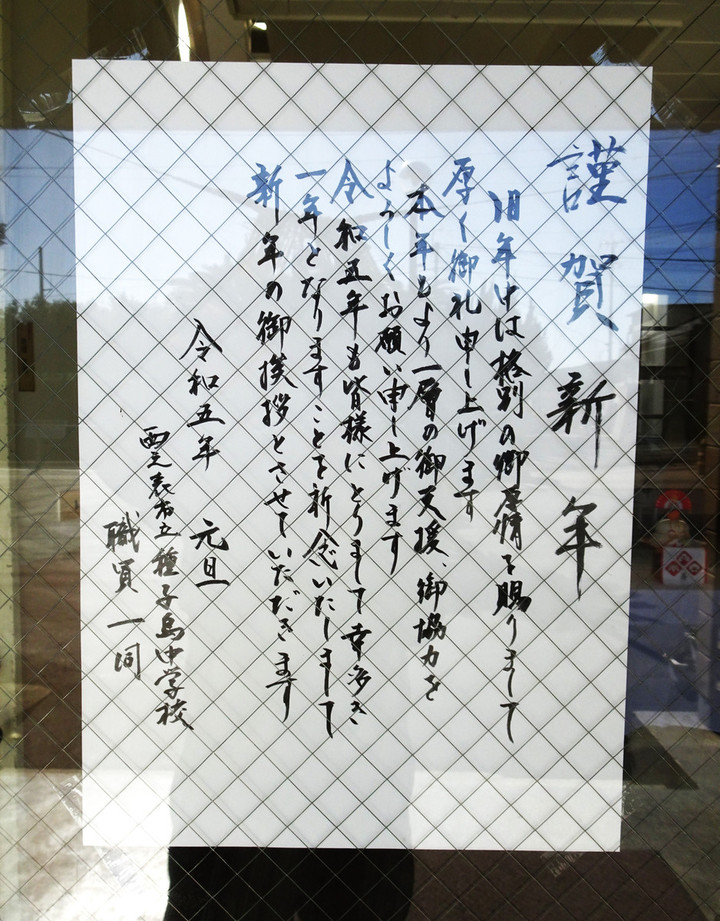 謹賀新年
旧年中は格別の御厚情を賜りまして
厚く御礼申し上げます
本年もより一層の御支援、御協力を
よろしくお願い申し上げます
令和五年も皆様にとりまして幸多き
一年となりますことを祈念いたしまして
新年の御挨拶とさせていただきます
令和五年 元旦
西之表市立種子島中学校
職員一同